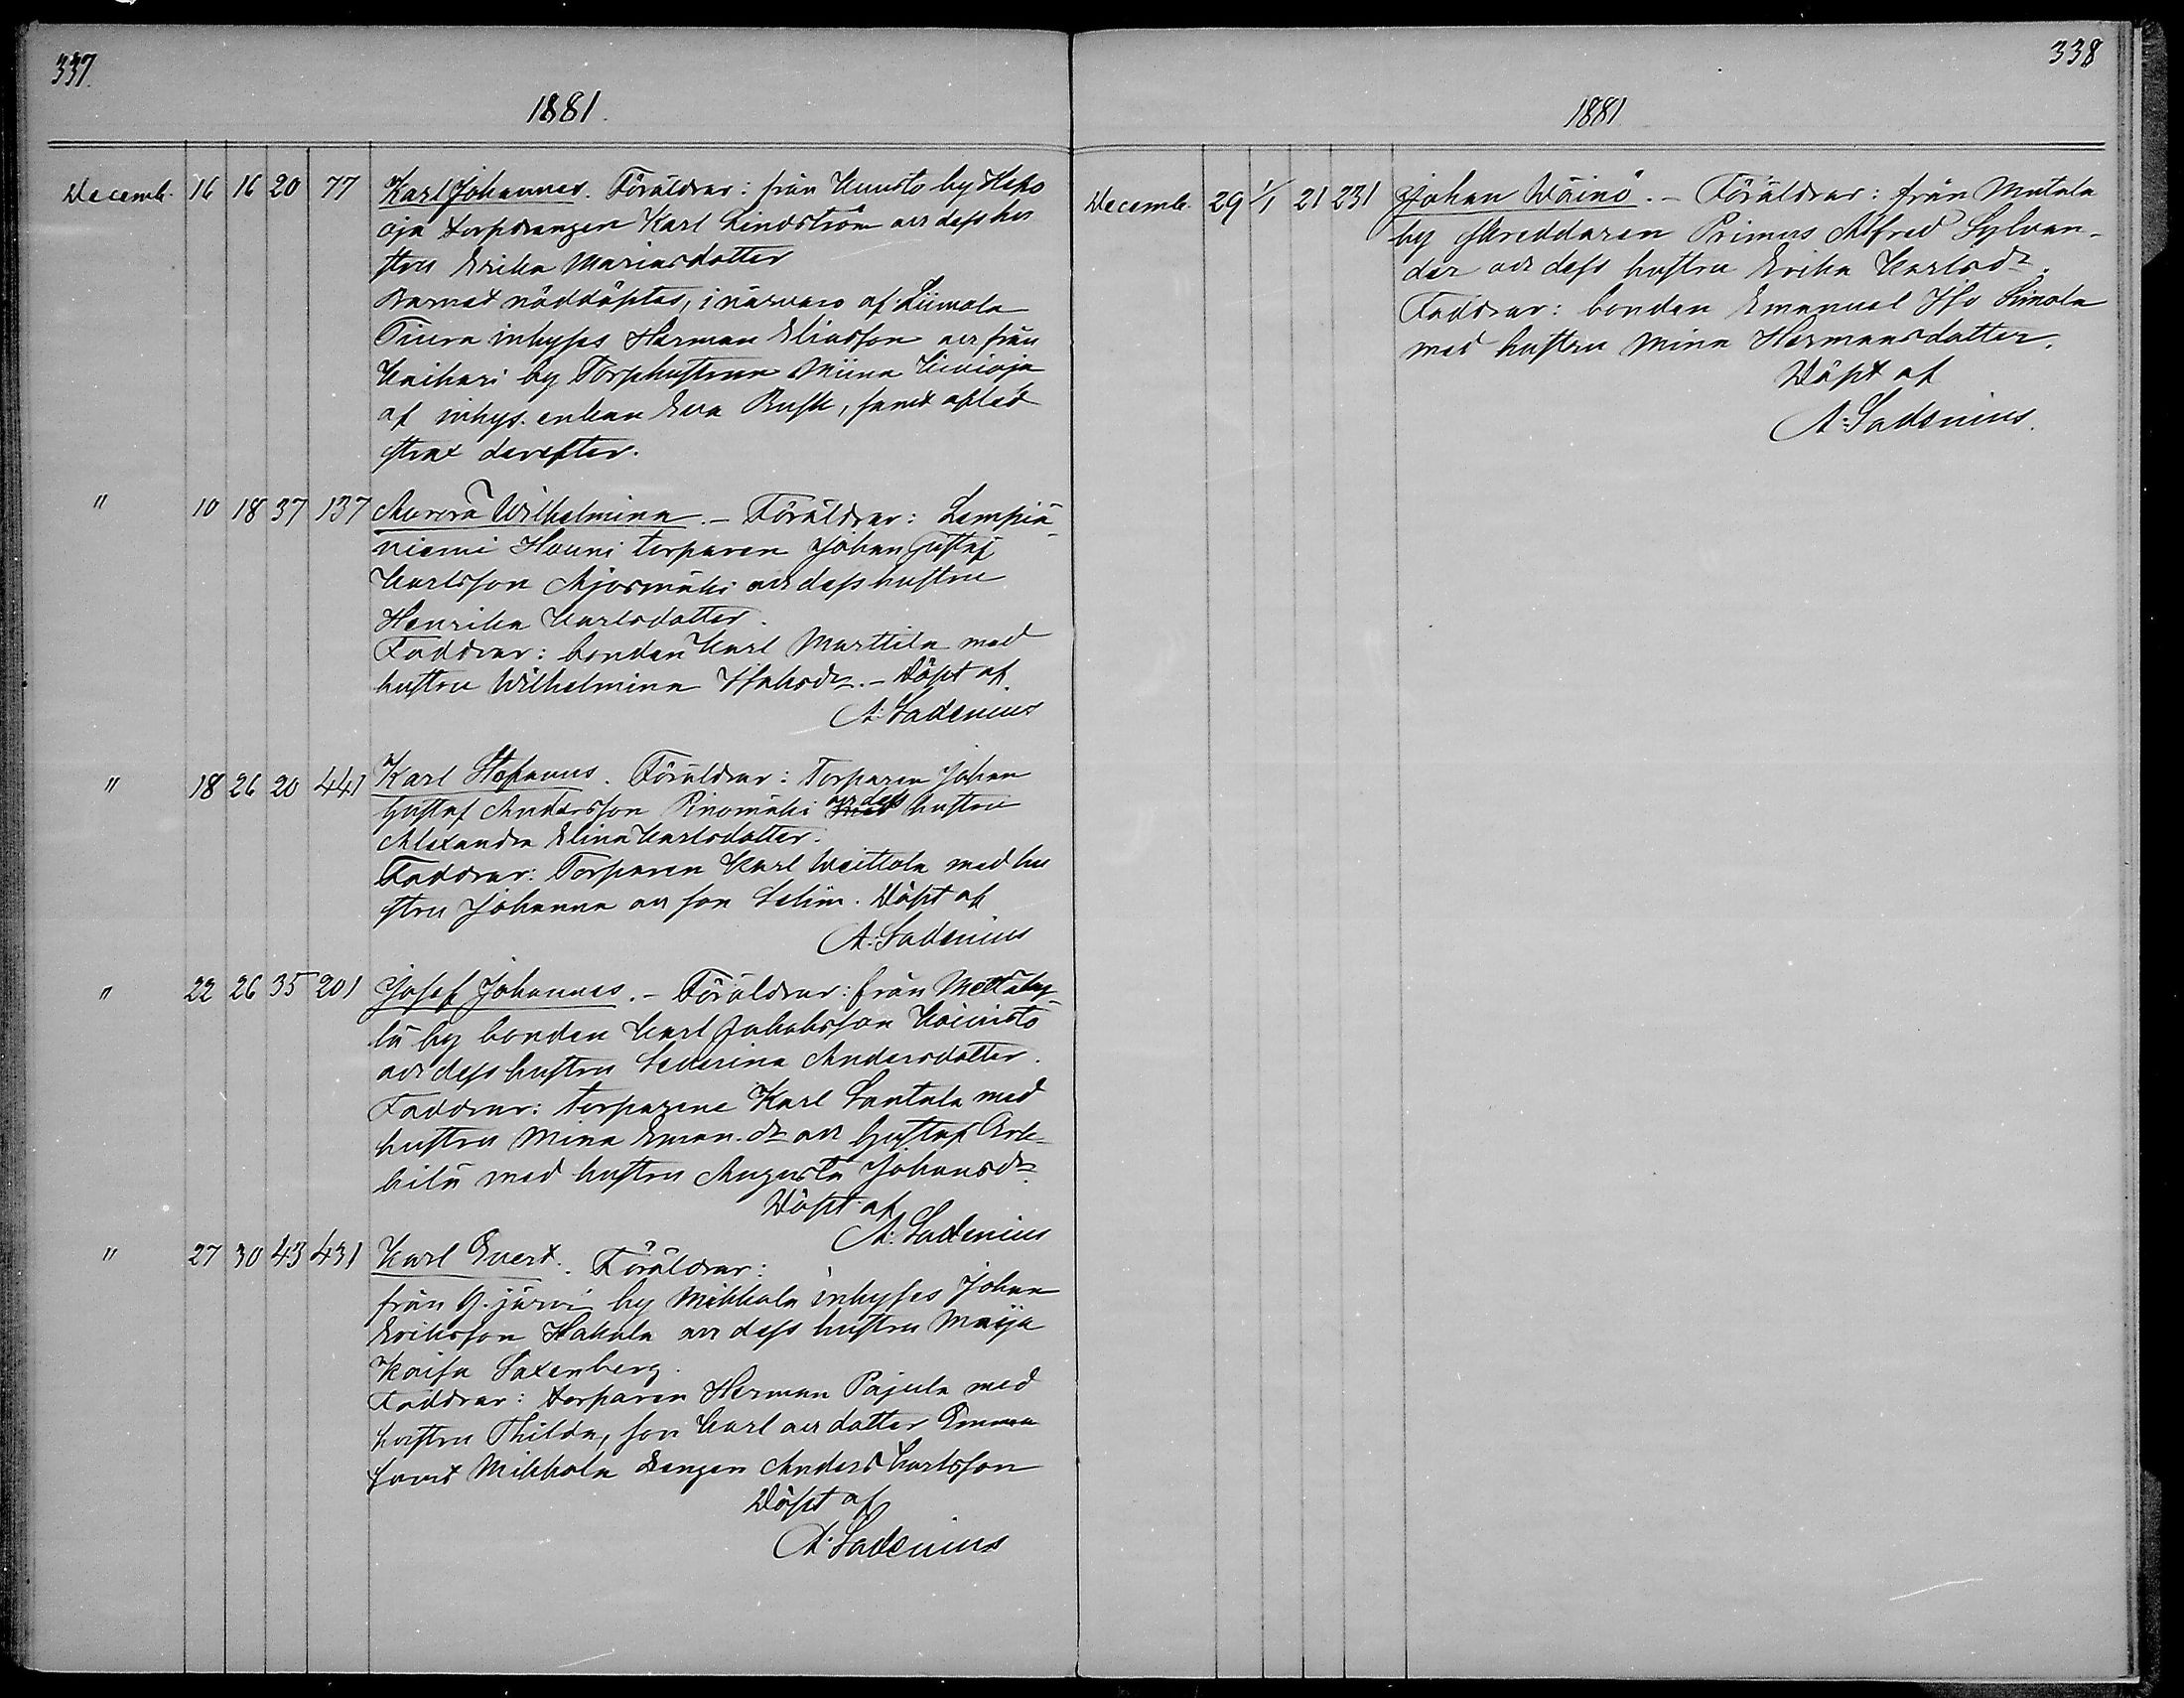 337.
1881.
Decemb. 16 16 20 77 Karl Johannes. Föräldrar: från Kuusto by Hepo
oja torpdrängen Karl Lindström och dess hu
stru Erika Mariasdotter
Barnet nöddöptes, i närvaro af Liimola
Tiura inhyses Herman Eliasson och från
Kaihari by Torphustrun Miina Kivioja
af inhys. enkan Eva Rusk, samt afled
strax derefter.
" 10 18 37 137 Aurora Wilhelmina. - Föräldrar: Lempiä-
niemi Houni torparen Johan Gustaf
Karlsson Ajosmäki och dess hustru
Henrika Karlsdotter.
Faddrar: bonden Karl Marttila med
hustru Wilhelmina Isaksdr. - Döpt af
A. Ladenius
" 18 26 20 441 Karl Stefanus. Föräldrar: Torparen Johan
Gustaf Andersson Pinomäki och dess hustru
Alexandra Elina Karlsdotter.
Faddrar: Torparen Karl Weittola med hu
stru Johanna och son Selim. Döpt af
A. Ladenius
" 22 26 35 201 Josef Johannes. - Föräldrar: från
lä by bonden Karl Jakobsson Koivisto
och dess hustru Severina Andersdotter.
Faddrar: torparene Karl Santala med
hustru Mina Eman.dr och Gustaf Erk-
kilä med hustru Augusta Johansdr.
Döpt af
A. Ladenius
" 27 30 43 431 Karl Evert. Föräldrar:
från G. järvi by Mikkola inhyses Johan
Eriksson Hakala och dess hustru Maija
Kaisa Saxenberg.
Faddrar: torparen Herman Pajula med
hustru Thilda, son Karl och dotter Emma
samt Mikkola drengen Anders Karlsson
Döpt af
A. Ladenius
338
1881
Decemb. 29 1/1 21 231 Johan Wäinö. - Föräldrar: från Mutala
by skreddaren Primus Alfred Sylvan-
der och dess hustru Erika Karlsdr.
Faddrar: bonden Emanuel Iso Simola
med hustru Mina Hermansdotter.
Döpt af
A. Ladenius.